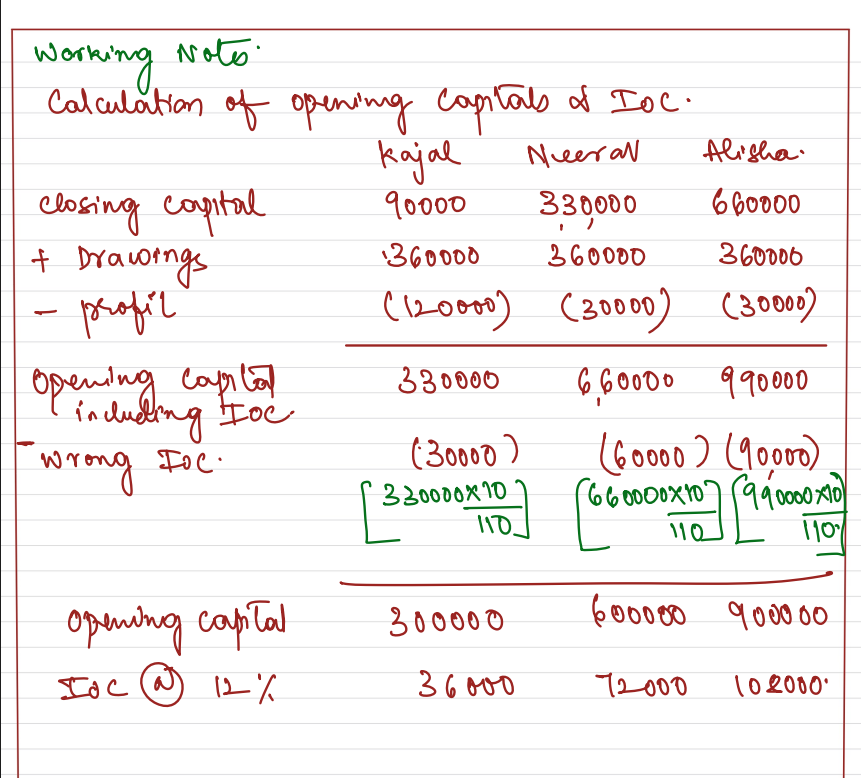 Working Notes.
Calculation of opening Capitals & IOC.
Kajal Neerav Alisha.
closing capital 90000 330,000 660000
+ Drawings 360000 360000 360000
- profit (120000) (30000) (30000)
Opening capital 330000 6,60000 990000
including IOC.
- wrong IOC. (30000) (60000) (90000)
[330000×10/110] [660000×10/110] [990000×10/110.]
opening capital 300000 600000 900000
IOC @ 12% 36000 72000 108000.